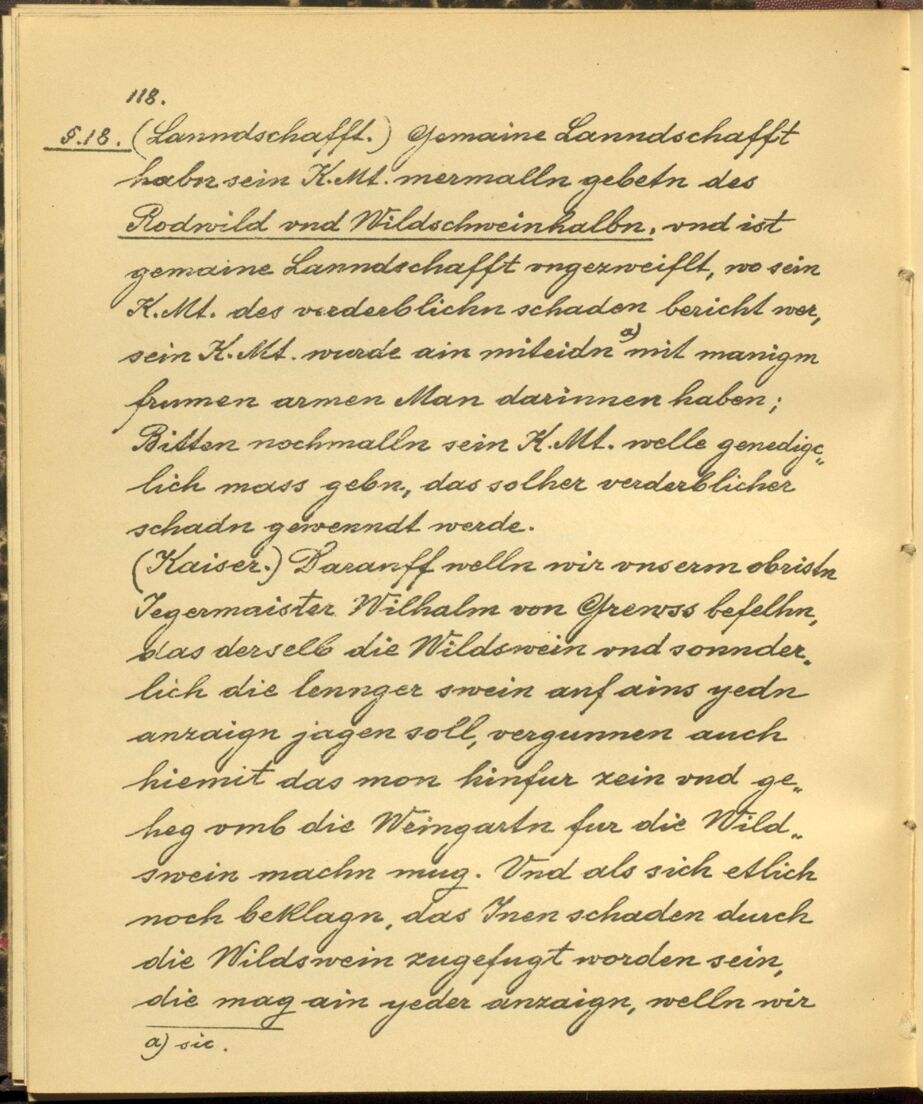 118.
§.18. (Lanndschafft.) Gemaine Lanndschafft
habn sein K.Mt. mermalln gebetn des
Rodwild vnd Wildschweinhalbn, vnd ist
gemaine Lanndschafft vngezweiflt, wo sein
K.Mt. des verderblichn schaden bericht wer,
sein K.Mt. wurde ain miteidn a) mit manigm
frumen armen Man darinnen haben;
Bitten nochmalln sein K.Mt. welle genedig„
lich mass gebn, das solher verderblicher
schadn gewenndt werde.
(Kaiser.) Darauff welln wir vnserm obristn
Jegermaister Wilhalm von Grewss befelhn,
das derselb die Wildswein vnd sonnder„
lich die lennger swein auf ains yedn
anzaign jagen soll, vergunnen auch
hiemit das mon hinfur zein vnd ge„
heg vmb die Weingartn fur die Wild„
swein machn mug. Vnd als sich etlich
noch beklagn, das Inen schaden durch
die Wildswein zugefugt worden sein,
die mag ain yeder anzaign, welln wir
a) sic.